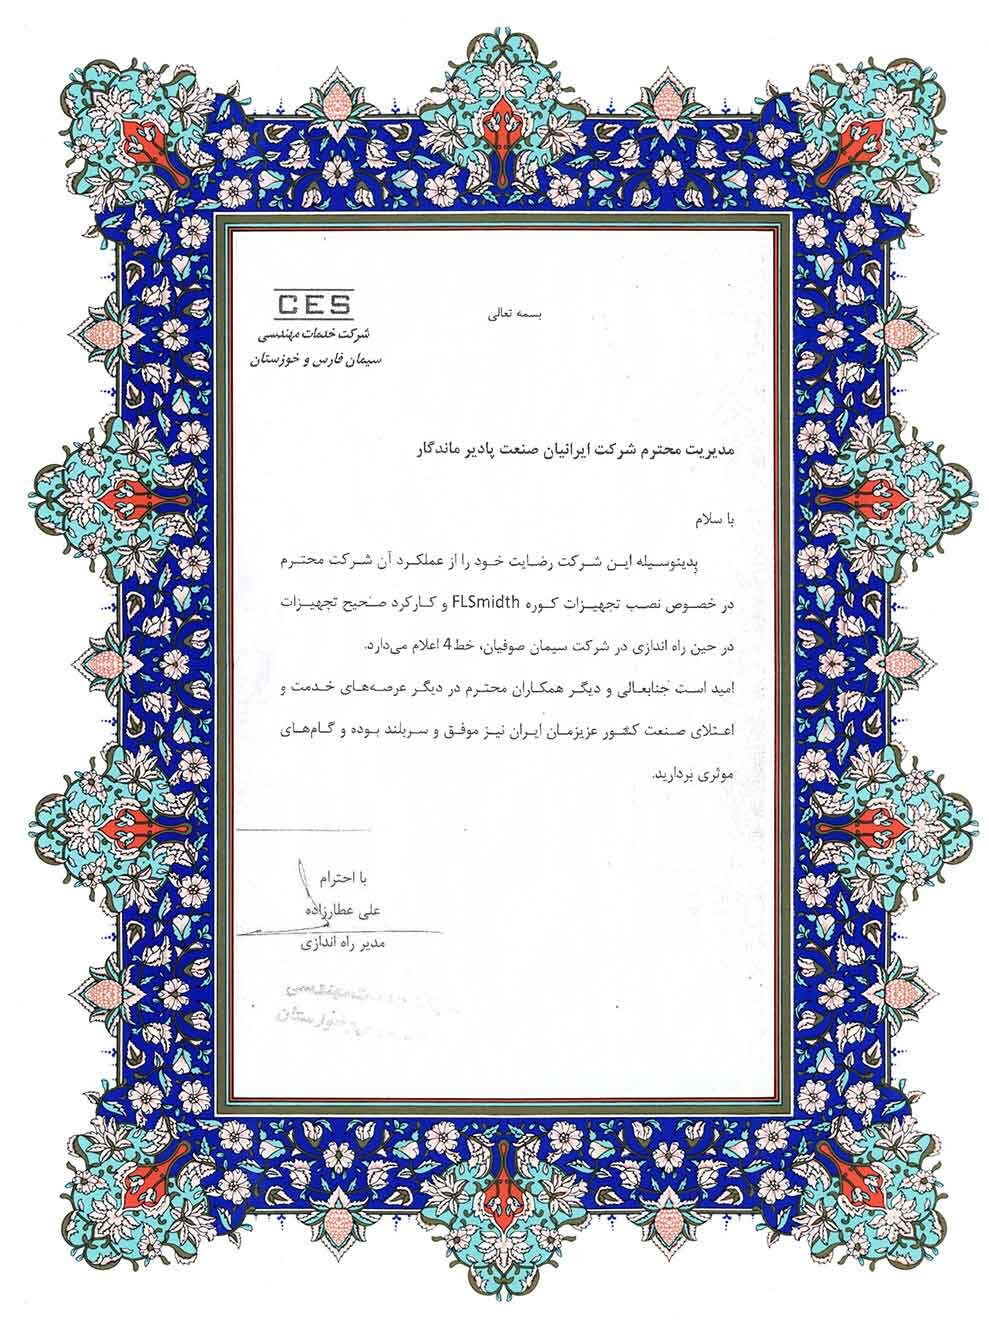 بسمه تعالی
CES
شرکت خدمات مهندسی
سیمان فارس و خوزستان
مدیریت محترم شرکت ایرانیان صنعت پادیر ماندگار
با سلام
بدینوسیله این شرکت رضایت خود را از عملکرد آن شرکت محترم
در خصوص نصب تجهیزات کوره FLSmidth و کارکرد صحیح تجهیزات
در حین راه اندازی در شرکت سیمان صوفیان، خط 4 اعلام می‌دارد.
امید است جنابعالی و دیگر همکاران محترم در دیگر عرصه‌های خدمت و
اعتلای صنعت کشور عزیزمان ایران نیز موفق و سربلند بوده و گام‌های
موثری بردارید.
با احترام
علی عطارزاده
مدیر راه اندازی
مهندسی
خوزستان